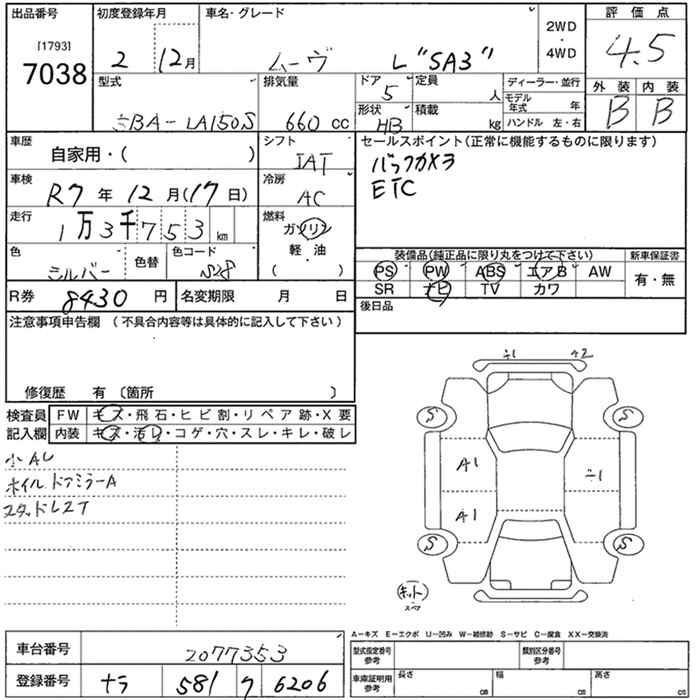 出品番号 初度登録年月 車名・グレード 2WD・4WD 評価点
[1793]
7038 2 12月 ムーヴ L "SA3" 4.5
型式 排気量 ドア 定員 ディーラー・並行 外装 内装
5 人 モデル年式 年
形状 積載 B B
ハンドル 左・右
BA-LA150S 660 cc HB kg
車歴 自家用・( ) シフト セールスポイント(正常に機能するものに限ります)
IAT バックカメラ
車検 R7年 12月(17日) 冷房 AC ETC
走行 1万3千753 km 燃料 ガソリン
軽・油
( )
色 シルバー 色替 色コード S28 装備品(純正品に限り丸をつけて下さい) 新車保証書
PS PW ABS エアB AW 有・無
SR ナビ TV カワ
R券 8430 円 名変期限 月 日 後日品
注意事項申告欄 (不具合内容等は具体的に記入して下さい)
修復歴 有 〔箇所 〕
検査員 FW キズ・飛石・ヒビ割・リペア跡・X要
記入欄 内装 キズ・汚レ・コゲ・穴・スレ・キレ・破レ
小AL
ホイル ドアミラーA
スタッドレスT
S S
A1
A1
S S
キット
スペア
A-キズ E-エクボ U-凹み W-補修跡 S-サビ C-腐食 XX-交換済
車台番号 2077353 型式指定番号 参考 類別区分番号 参考
登録番号 ナラ 581 ワ 6206 車庫証明用 参考 長さ cm 幅 cm 高さ cm